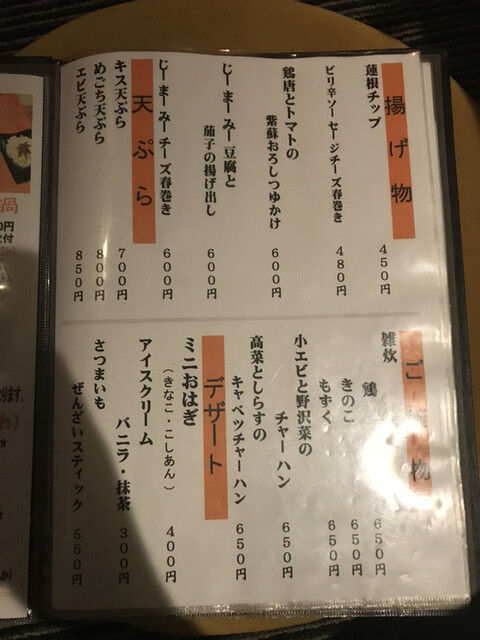 揚げ物
蓮根チップ
450円
ピリ辛ソーセージチーズ春巻き
480円
鶏唐とトマトの
紫蘇おろしつゆかけ
600円
じーまーみー豆腐と
茄子の揚げ出し
600円
じーまーみーチーズ春巻き
600円
天ぷら
キス天ぷら
700円
めごち天ぷら
800円
エビ天ぷら
850円
ご飯物
雑炊
鶏
650円
きのこ
650円
もずく
650円
小エビと野沢菜の
チャーハン
650円
高菜としらすの
キャベツチャーハン
650円
デザート
ミニおはぎ
(きなこ・こしあん)
400円
アイスクリーム
バニラ・抹茶
300円
さつまいも
ぜんざいスティック
550円
鍋